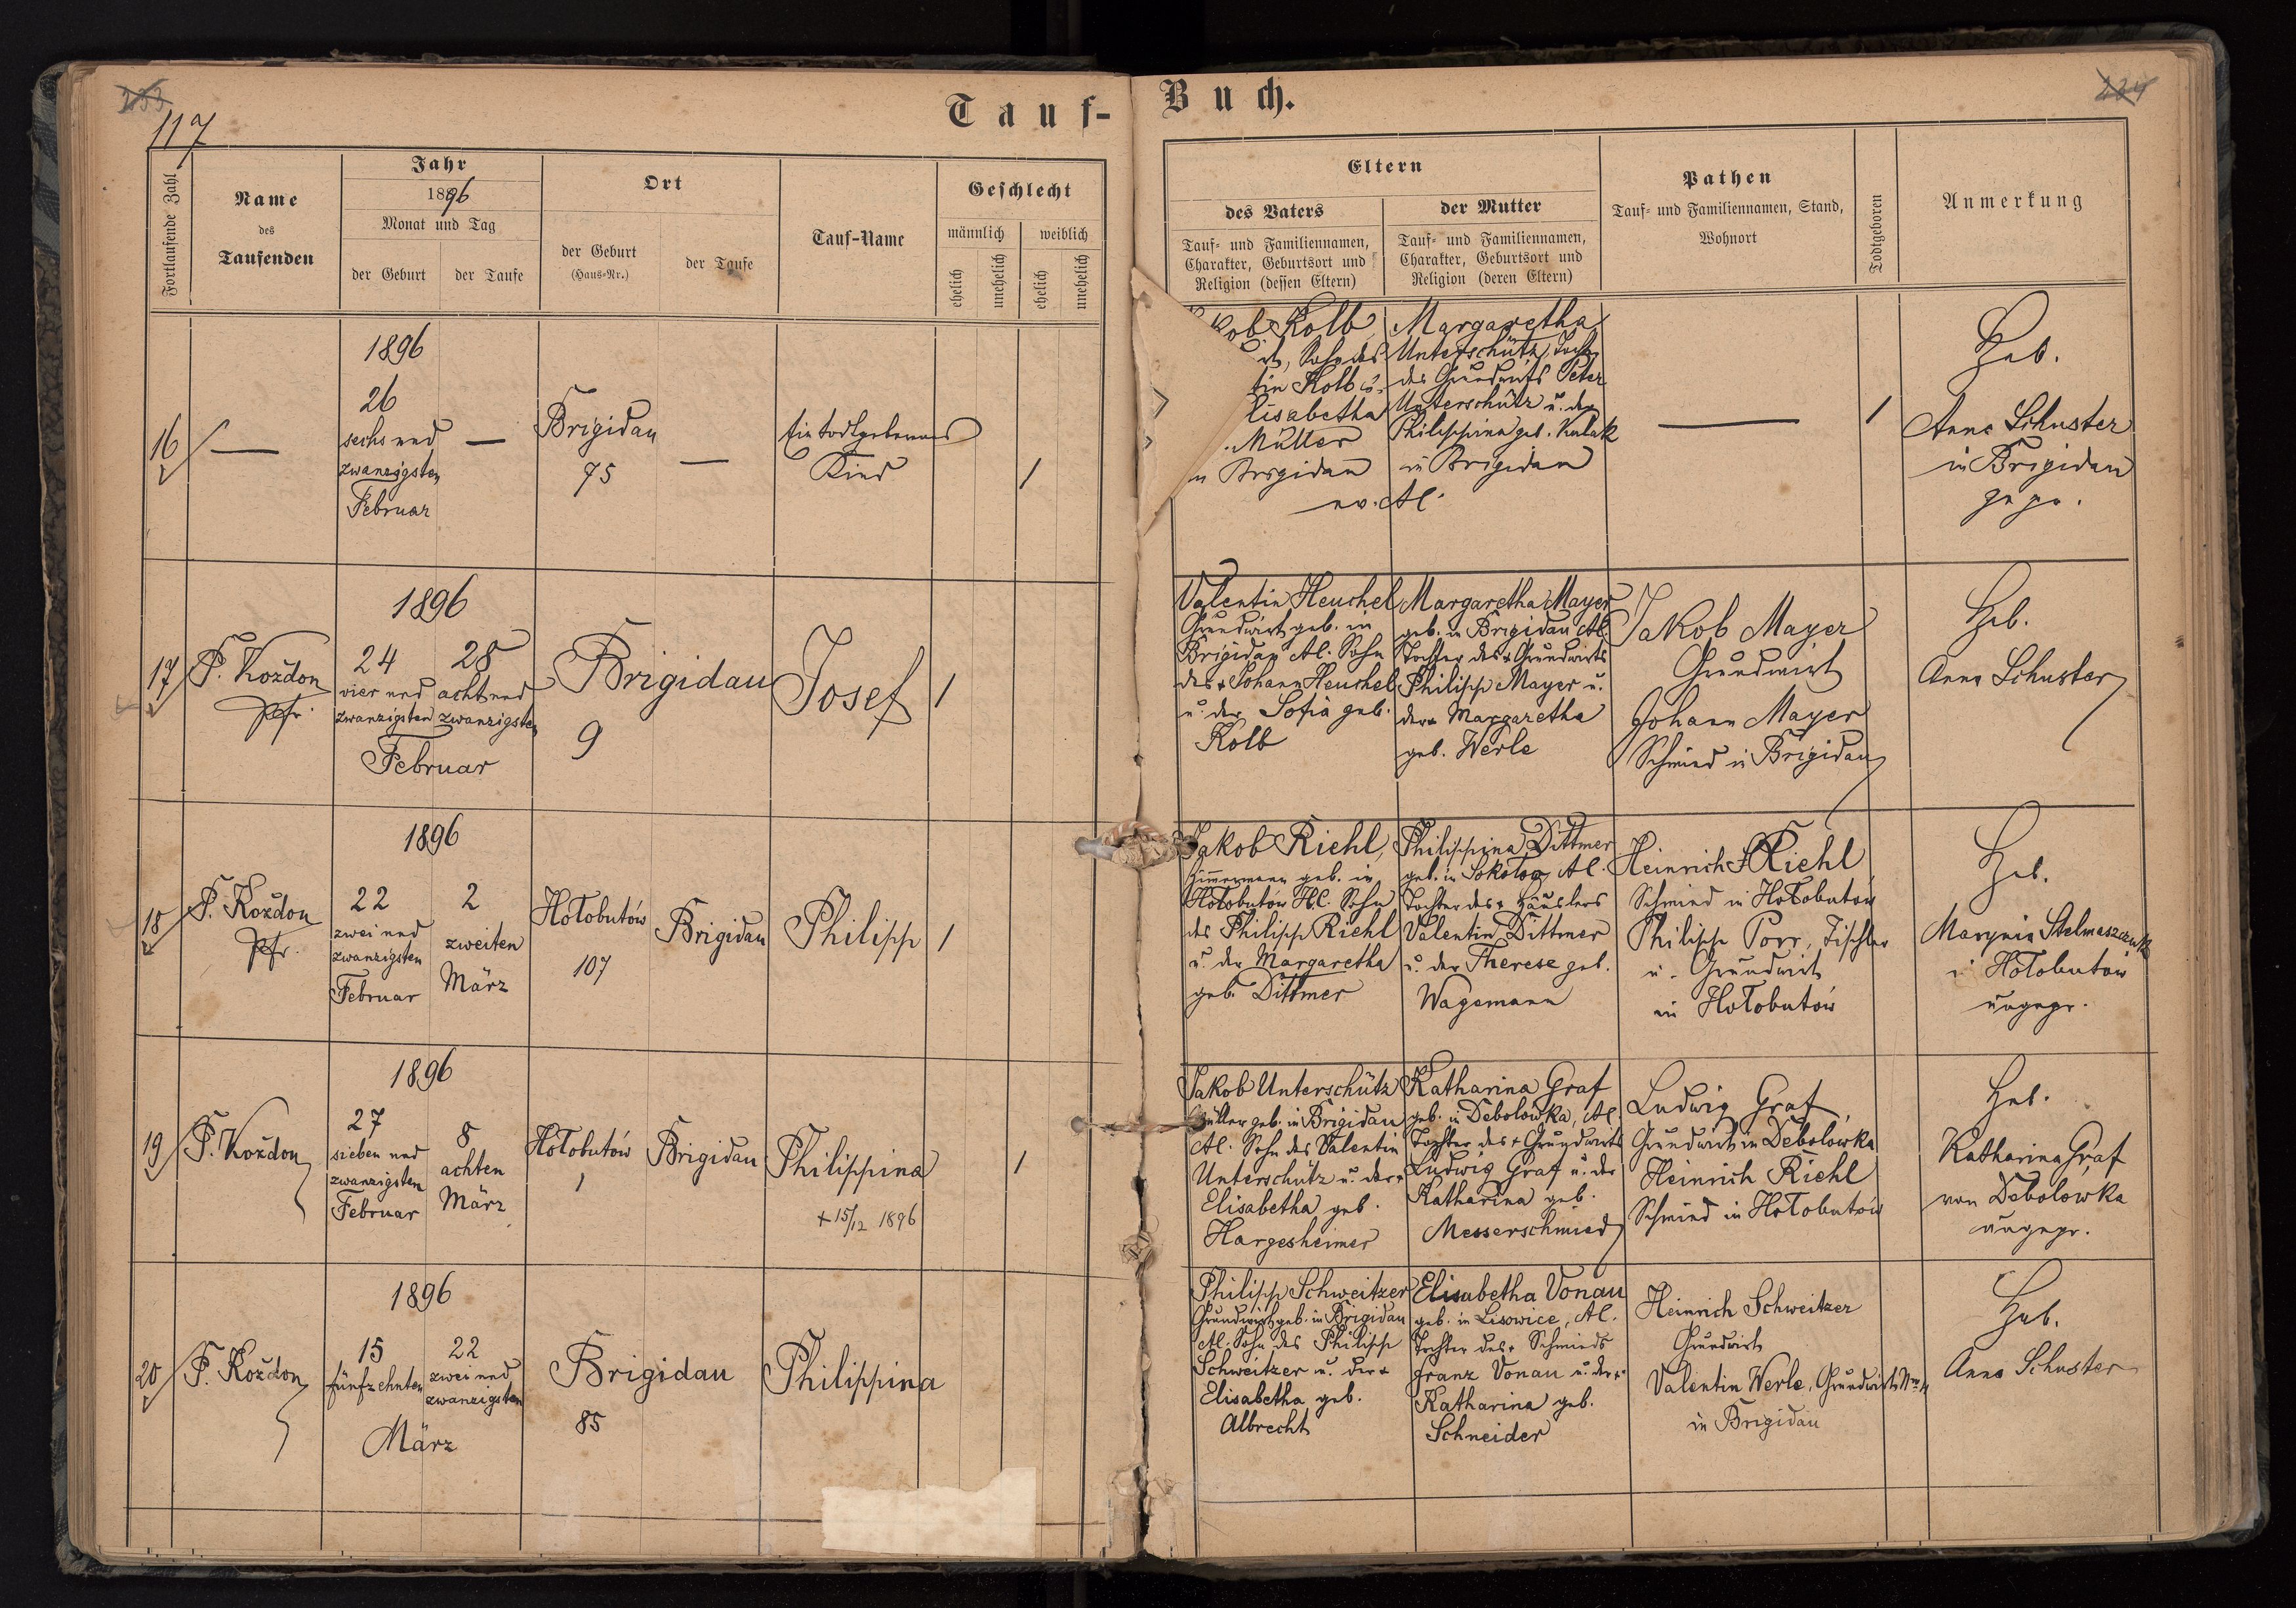 117
Tauf-
Buch.
Fortlaufende Zahl
Name
des
Taufenden
Jahr
1896
Monat und Tag
der Geburt
der Taufe
Ort
der Geburt
(Haus-Nr.)
der Taufe
Tauf-Name
Geschlecht
männlich
weiblich
ehelich
unehelich
ehelich
unehelich
Eltern
des Vaters
Tauf- und Familiennamen,
Charakter, Geburtsort und
Religion (dessen Eltern)
der Mutter
Tauf- und Familiennamen,
Charakter, Geburtsort und
Religion (deren Eltern)
Pathen
Tauf- und Familiennamen, Stand,
Wohnort
Todtgeboren
Anmerkung
16
—
1896
26
sechs und
zwanzigsten
Februar
—
Brigidau
75
—
Ein todtgeborenes
Kind
1
Kolb
Sohn des
Kolb u.
Müller
Brigidau
ev. A.C.
Margaretha
Unterschütz, Tocht.
des Grundwirts Peter
Unterschütz u. der
Philippina geb. Kulak
in Brigidau
—
1
Heb.
Anna Schuster
in Brigidau
gepr.
17
F. Koždon
Pfr.
1896
24
vier und
zwanzigsten
28
acht und
zwanzigsten
Februar
Brigidau
9
Josef
1
Valentin Heuchel
Grundwirt geb. in
Brigidau A.C. Sohn
des + Johann Heuchel
u. der Sofia geb.
Kolb
Margaretha Mayer
geb. in Brigidau A.C.
Tochter des + Grundwirts
Philipp Mayer u.
der + Margaretha
geb. Werle
Jakob Mayer
Grundwirt
Johann Mayer
Schmied in Brigidau
Heb.
Anna Schuster
18
F. Koždon
Pfr.
1896
22
zwei und
zwanzigsten
Februar
2
zweiten
März
Hołobutów
107
Brigidau
Philipp
1
Jakob Riehl,
Zimmermann geb. in
Hołobutów H.C. Sohn
des Philipp Riehl
u. der Margaretha
geb. Dittmer
Philippina Dittmer
geb. in A.C.
Tochter des + Häuslers
Valentin Dittmer
u. der Therese geb.
Wagemann
Heinrich Riehl
Schmied in Hołobutów
Philipp Porr, Tischler
u. Grundwirt
in Hołobutów
Heb.
Marynia Stelmaszczuk
in Hołobutów
ungepr.
19
F. Koždon
1896
27
sieben und
zwanzigsten
Februar
8
achten
März
Hołobutów
1
Brigidau
Philippina
+ 15/12 1896
1
Jakob Unterschütz
Müller geb. in Brigidau
A.C. Sohn des Valentin
Unterschütz u. der +
Elisabetha geb.
Hargesheimer
Katharina Graf
geb. in Debolówka, A.C.
Tochter des + Grundwirts
Ludwig Graf u. der
Katharina geb.
Messerschmied
Ludwig Graf,
Grundwirt in Debolówka
Heinrich Riehl
Schmied in Hołobutów
Heb.
Katharina Graf
von Debolówka
ungepr.
20
F. Koždon
1896
15
fünfzehnten
22
zwei und
zwanzigsten
März
Brigidau
85
Philippina
Philipp Schweitzer
Grundwirt geb. in Brigidau
A.C. Sohn des Philipp
Schweitzer u. der +
Elisabetha geb.
Albrecht
Elisabetha Vonau
geb. in Lisowice, A.C.
Tochter des + Schmieds
Franz Vonau u. der +
Katharina geb.
Schneider
Heinrich Schweitzer
Grundwirt
Valentin Werle, Grundwirts
in Brigidau
Heb.
Anna Schuster